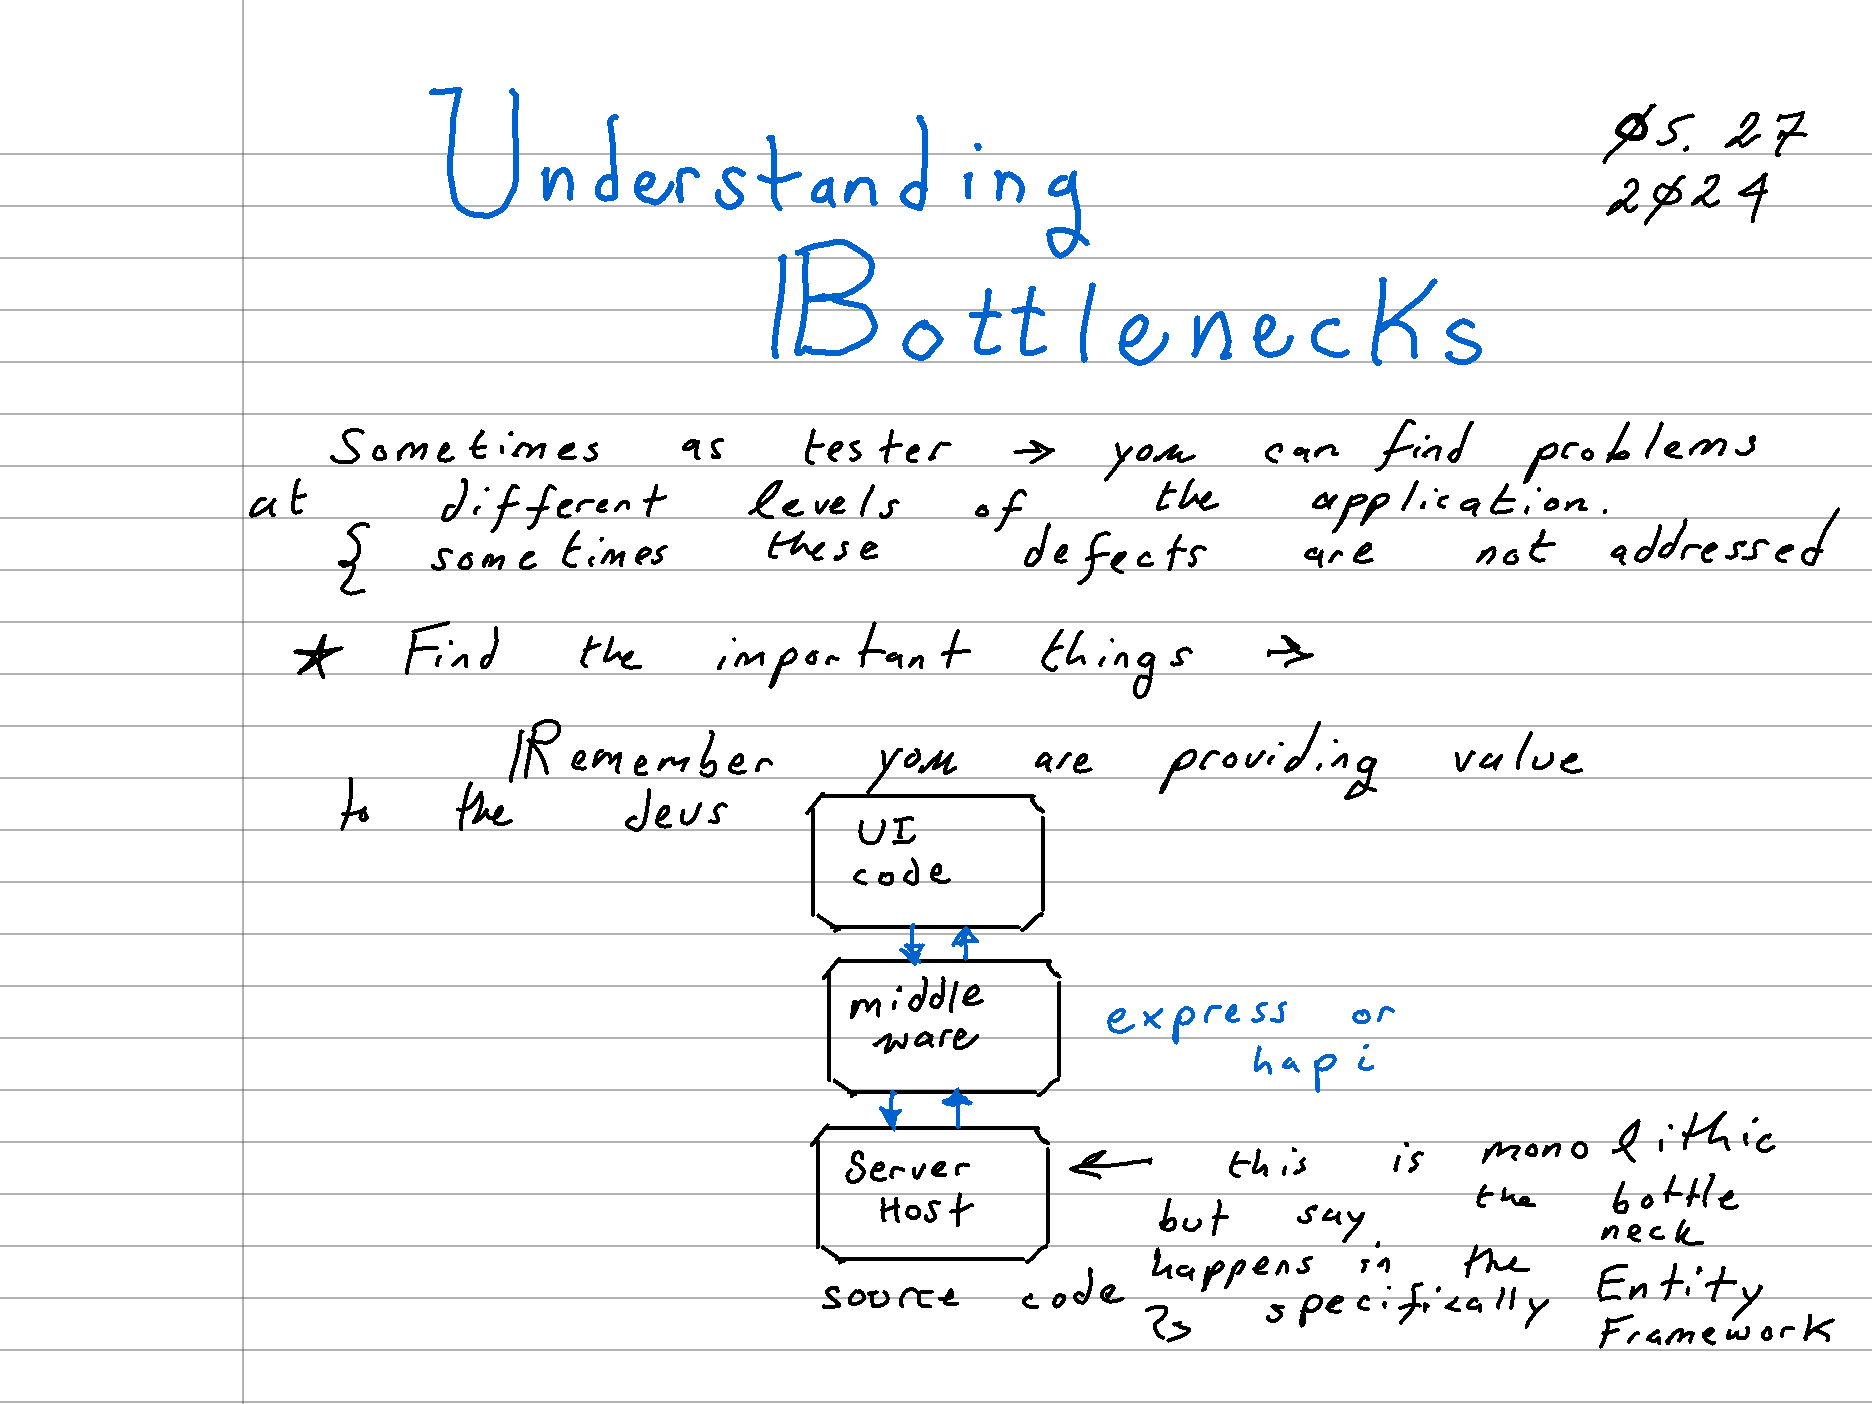 Understanding
Bottlenecks
05. 27
2024
Sometimes as tester → you can find problems
at different levels of the application.
{ sometimes these defects are not addressed
★ Find the important things →
Remember you are providing value
to the devs
UI
code
middle
ware
express or
hapi
Server
Host
← this is monolithic
but say the bottle
neck
happens in the
source code
↳ specifically Entity
Framework